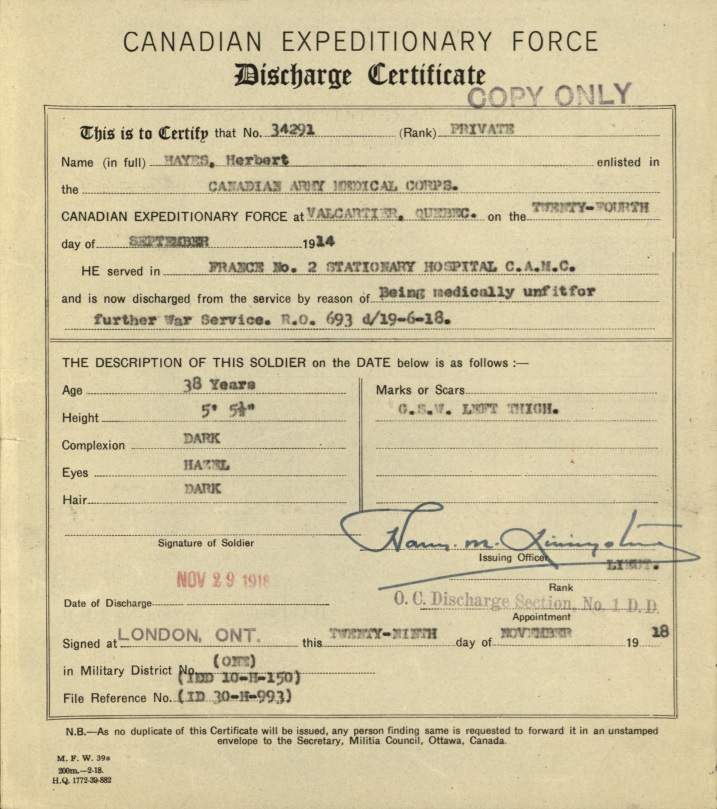 CANADIAN EXPEDITIONARY FORCE
Discharge Certificate
COPY ONLY
This is to Certify that No. 34291 (Rank) PRIVATE
Name (in full) HAYES, Herbert enlisted in
the CANADIAN ARMY MEDICAL CORPS.
CANADIAN EXPEDITIONARY FORCE at VALCARTIER, QUEBEC. on the TWENTY-FOURTH
day of SEPTEMBER 1914
HE served in FRANCE No. 2 STATIONARY HOSPITAL C.A.M.C.
and is now discharged from the service by reason of Being medically unfitfor
further War Service. R.O. 693 d/19-6-18.
THE DESCRIPTION OF THIS SOLDIER on the DATE below is as follows :—
Age 38 Years
Height 5' 5½"
Complexion DARK
Eyes HAZEL
Hair DARK
Marks or Scars
G.S.W. LEFT THIGH.
Signature of Soldier
Issuing Officer
LIEUT.
Rank
NOV 29 1918
Date of Discharge
O.C. Discharge Section, No. 1 D.D.
Appointment
Signed at LONDON, ONT. this TWENTY-NINTH day of NOVEMBER 19 18
in Military District No. (ONE)
(1DD 10-H-150)
File Reference No. (1D 30-H-993)
N.B.—As no duplicate of this Certificate will be issued, any person finding same is requested to forward it in an unstamped
envelope to the Secretary, Militia Council, Ottawa, Canada.
M. F. W. 39a
200m.—2-18.
H.Q. 1772-39-882